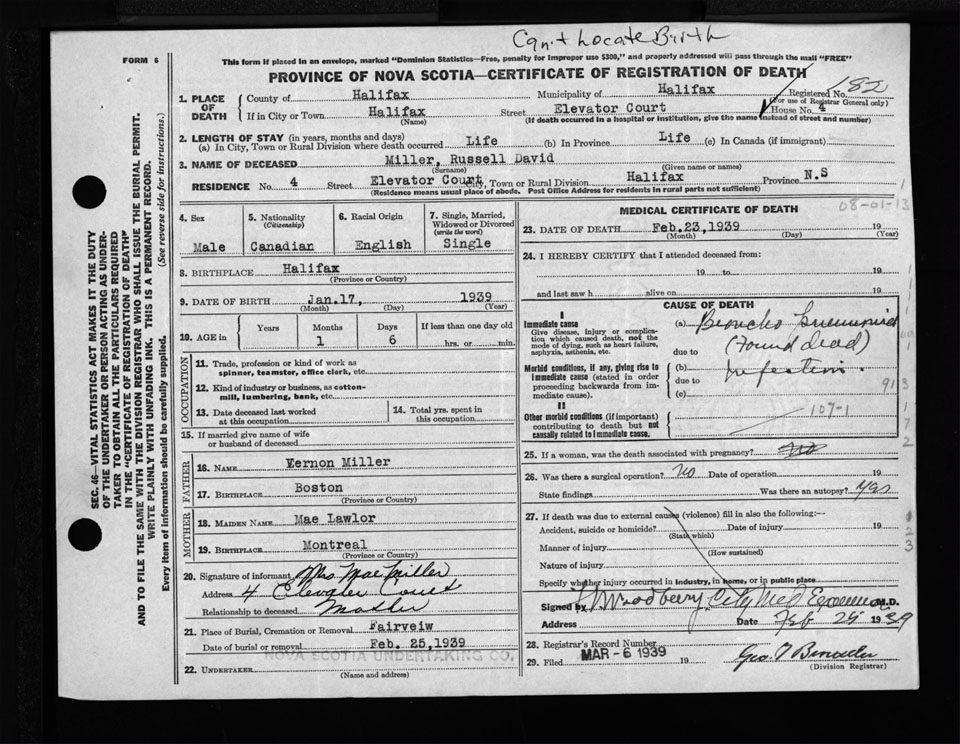 Can't Locate Birth
FORM 6
This form if placed in an envelope, marked "Dominion Statistics—Free, penalty for improper use $300," and properly addressed will pass through the mail "FREE"
PROVINCE OF NOVA SCOTIA—CERTIFICATE OF REGISTRATION OF DEATH
182
1. PLACE OF DEATH
County of Halifax Municipality of Halifax Registered No.
(For use of Registrar General only)
If in City or Town Halifax Street Elevator Court House No. 4
(Name) (If death occurred in a hospital or institution, give the name instead of street and number)
2. LENGTH OF STAY (in years, months and days)
(a) In City, Town or Rural Division where death occurred Life (b) In Province Life (c) In Canada (if immigrant)
3. NAME OF DECEASED Miller, Russell David
(Surname) (Given name or names)
RESIDENCE No. 4 Street Elevator Court City, Town or Rural Division Halifax Province N.S
(Residence means usual place of abode. Post Office Address for residents in rural parts not sufficient)
SEC. 46—VITAL STATISTICS ACT MAKES IT THE DUTY
OF THE UNDERTAKER OR PERSON ACTING AS UNDER-
TAKER TO OBTAIN ALL THE PARTICULARS REQUIRED
IN THE "CERTIFICATE OF REGISTRATION OF DEATH"
AND TO FILE THE SAME WITH THE DIVISION REGISTRAR WHO SHALL ISSUE THE BURIAL PERMIT.
WRITE PLAINLY WITH UNFADING INK. THIS IS A PERMANENT RECORD.
Every item of information should be carefully supplied. (See reverse side for instructions.)
4. Sex
Male
5. Nationality
(Citizenship)
Canadian
6. Racial Origin
English
7. Single, Married,
Widowed or Divorced
(write the word)
Single
8. BIRTHPLACE Halifax
(Province or Country)
9. DATE OF BIRTH Jan.17, 1939
(Month) (Day) (Year)
10. AGE in
Years Months Days If less than one day old
1 6 hrs. or min.
OCCUPATION
11. Trade, profession or kind of work as
spinner, teamster, office clerk, etc.
12. Kind of industry or business, as cotton-
mill, lumbering, bank, etc.
13. Date deceased last worked
at this occupation
14. Total yrs. spent in
this occupation
15. If married give name of wife
or husband of deceased
FATHER
16. NAME Vernon Miller
17. BIRTHPLACE Boston
(Province or Country)
MOTHER
18. MAIDEN NAME Mae Lawlor
19. BIRTHPLACE Montreal
(Province or Country)
20. Signature of informant Mrs Mae Miller
Address 4 Elevator Court
Relationship to deceased Mother
21. Place of Burial, Cremation or Removal Fairveiw
Date of burial or removal Feb. 25,1939
NOVA SCOTIA UNDERTAKING CO.
22. UNDERTAKER
(Name and address)
MEDICAL CERTIFICATE OF DEATH
08-01-13
23. DATE OF DEATH Feb.23,1939
(Month) (Day) (Year)
24. I HEREBY CERTIFY that I attended deceased from:
19 to 19
and last saw h alive on 19
CAUSE OF DEATH
I
Immediate cause
Give disease, injury or complica-
tion which caused death, not the
mode of dying, such as heart failure,
asphyxia, asthenia, etc.
(a) Broncho Pneumonia
(Found dead)
due to
Morbid conditions, if any, giving rise to
immediate cause (stated in order
proceeding backwards from im-
mediate cause).
(b) Infection.
due to
(c)
II
Other morbid conditions (if important)
contributing to death but not
causally related to immediate cause.
107-1
25. If a woman, was the death associated with pregnancy? No
26. Was there a surgical operation? No Date of operation 19
State findings Was there an autopsy? Yes
27. If death was due to external causes (violence) fill in also the following:—
Accident, suicide or homicide? Date of injury 19
(State which)
Manner of injury
(How sustained)
Nature of injury
Specify whether injury occurred in industry, in home, or in public place
Signed by Woodbury, City Med Examiner M.D.
Address Date Feb 25 1939
28. Registrar's Record Number
29. Filed MAR-6 1939 19
(Division Registrar)